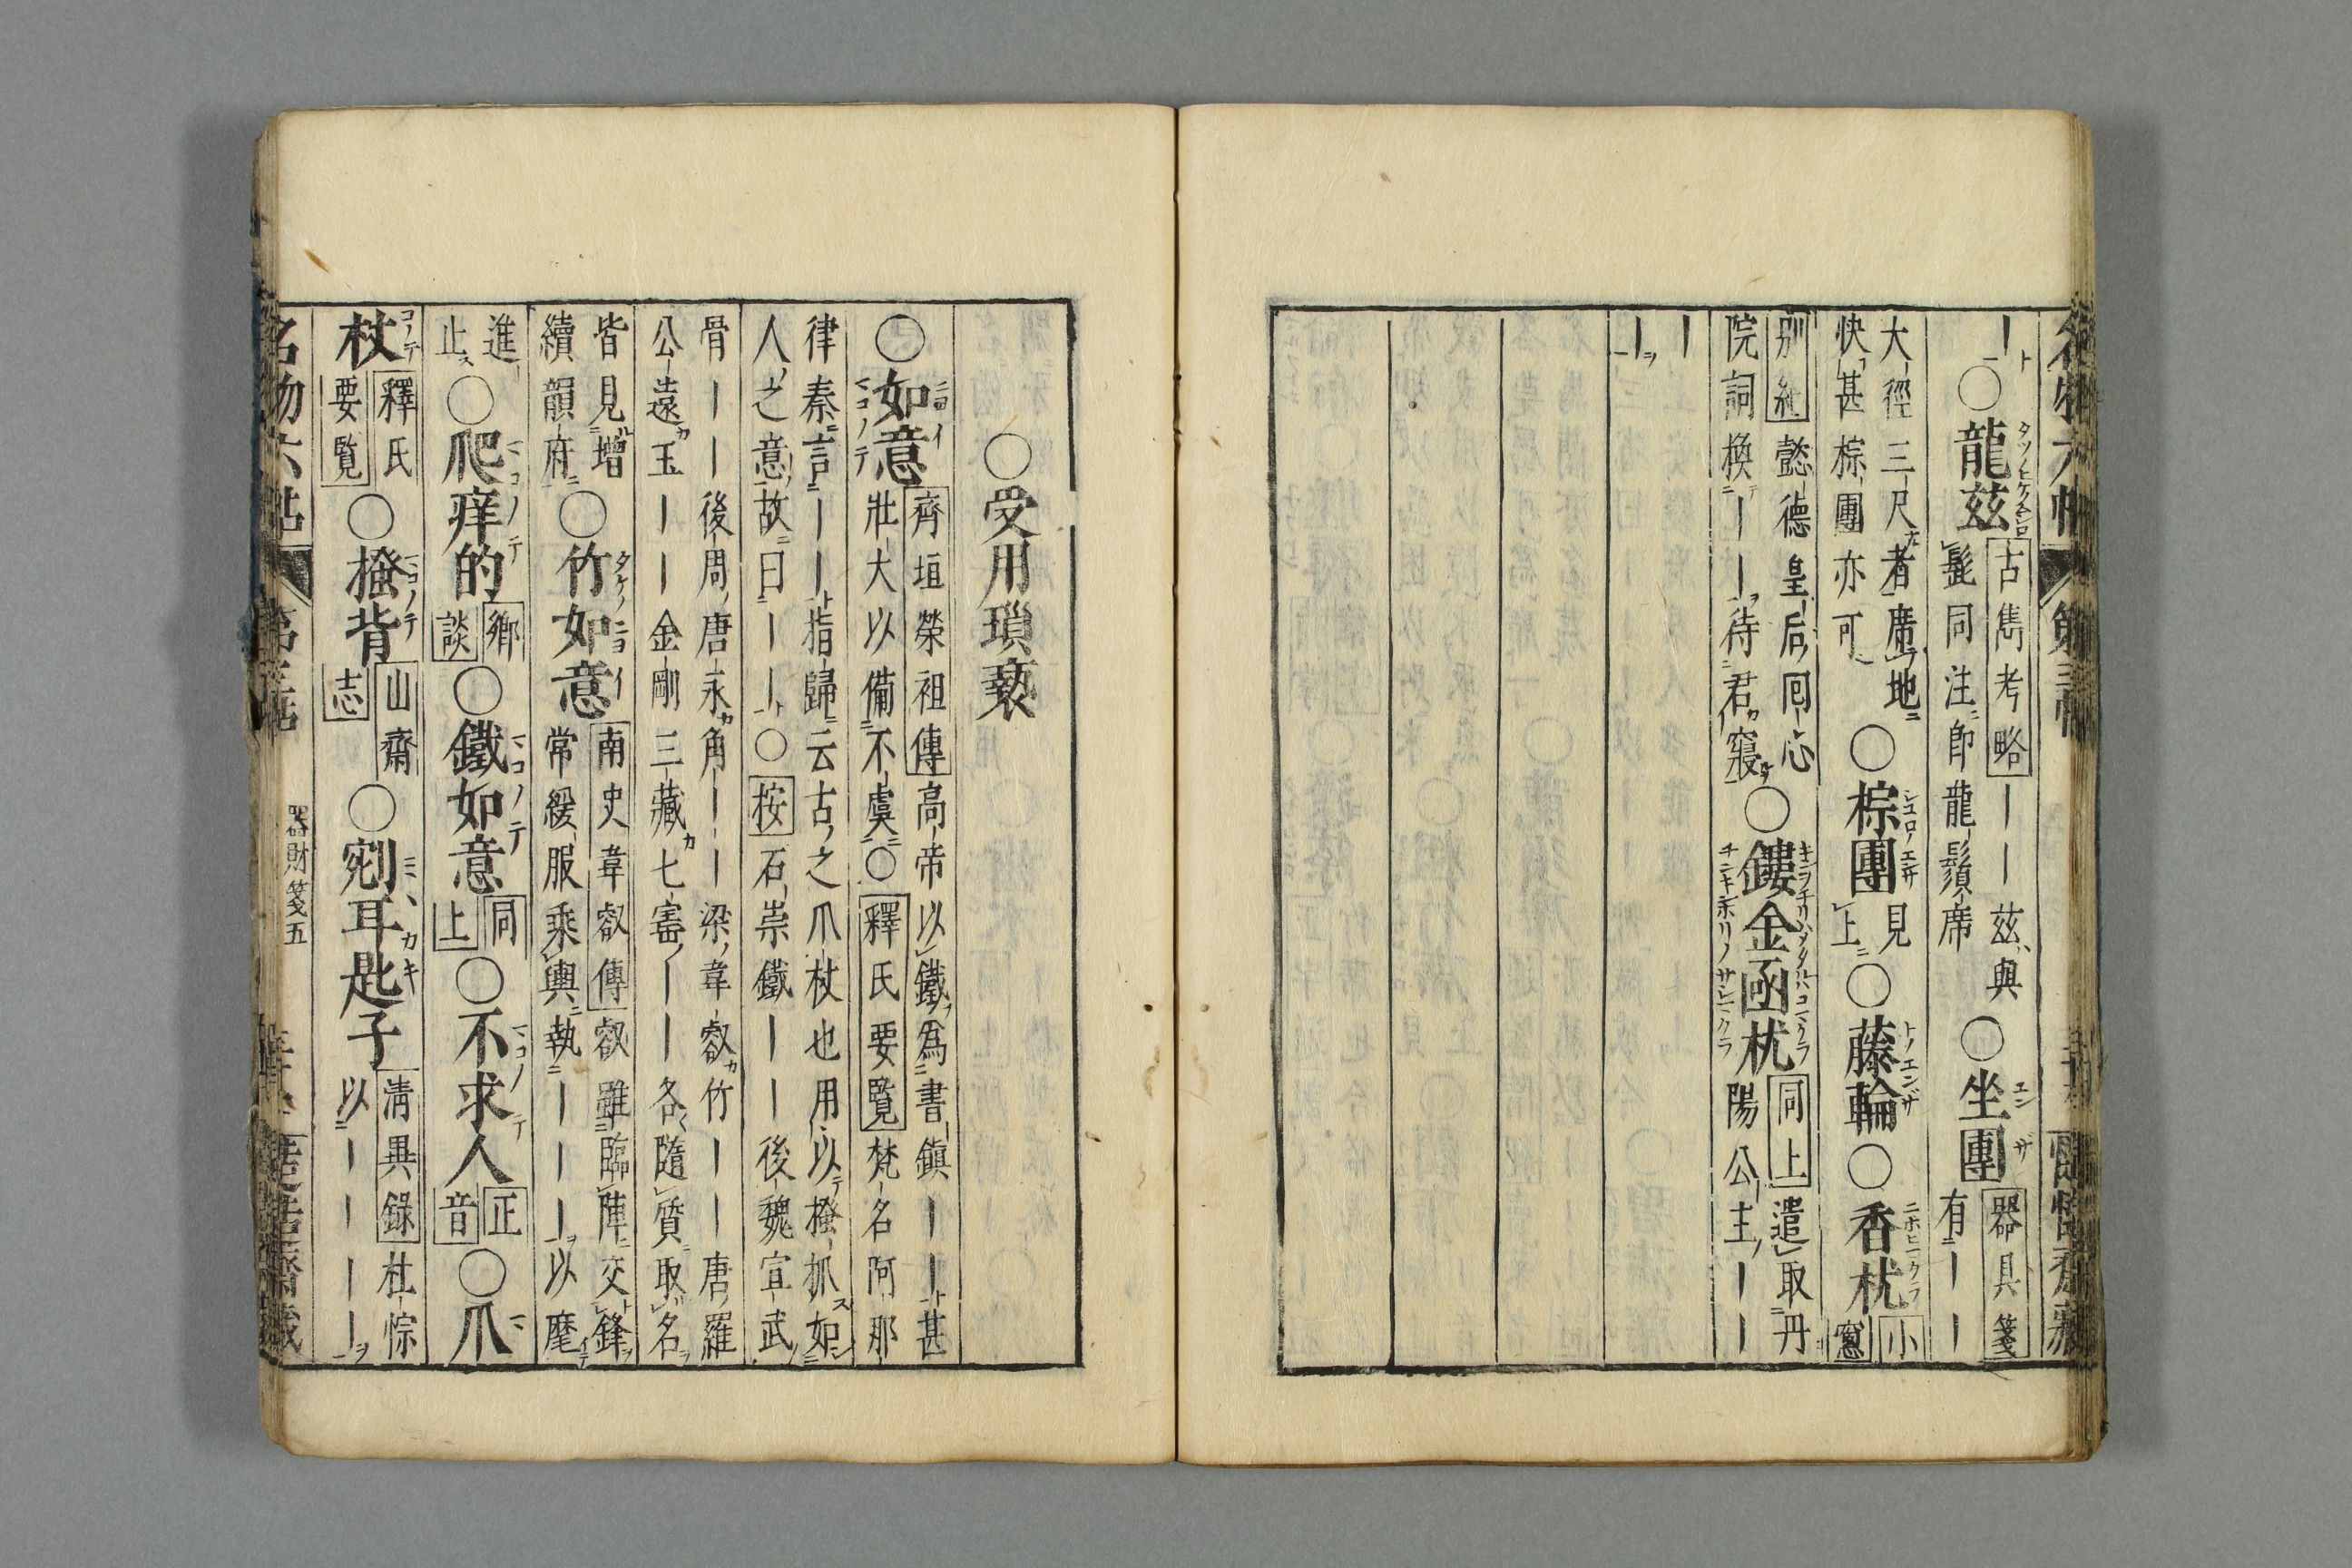 ー○龍茲 古雋考略ーー茲與髭同注即龍鬚席 ○坐團 器具箋有ーー
大徑三尺者席地快甚棕團亦可 ○棕團 見上 ○藤輪 ○香枕 小窓
別紀懿德皇后回心院詞換ーーー待君寢 ○鏤金函枕 同上遣取丹陽公主ーー
ーー
○受用瑣褻
○如意 齊垣榮祖傳高帝以鐵為書鎮ーー甚壯大以備不虞○釋氏要覽梵名阿那
律秦言ーー指歸云古之爪杖也用以搔抓如人之意故曰ーー○按石崇鐵ーー後魏宣武
骨ーー後周唐永角ーー梁韋叡竹ーー唐羅公遠玉ーー金剛三藏七寶ーー各隨質取名
皆見增續韻府 ○竹如意 南史韋叡傳叡雖臨陣交鋒常緩服乘輿執ーーー以麾
進止 ○爬痒的 鄉談 ○鐵如意 同上 ○不求人 正音 ○爪
杖 釋氏要覽 ○搔背 山齋志 ○剜耳匙子 清異錄杜悰以ーーーー
名物六帖 器財箋五